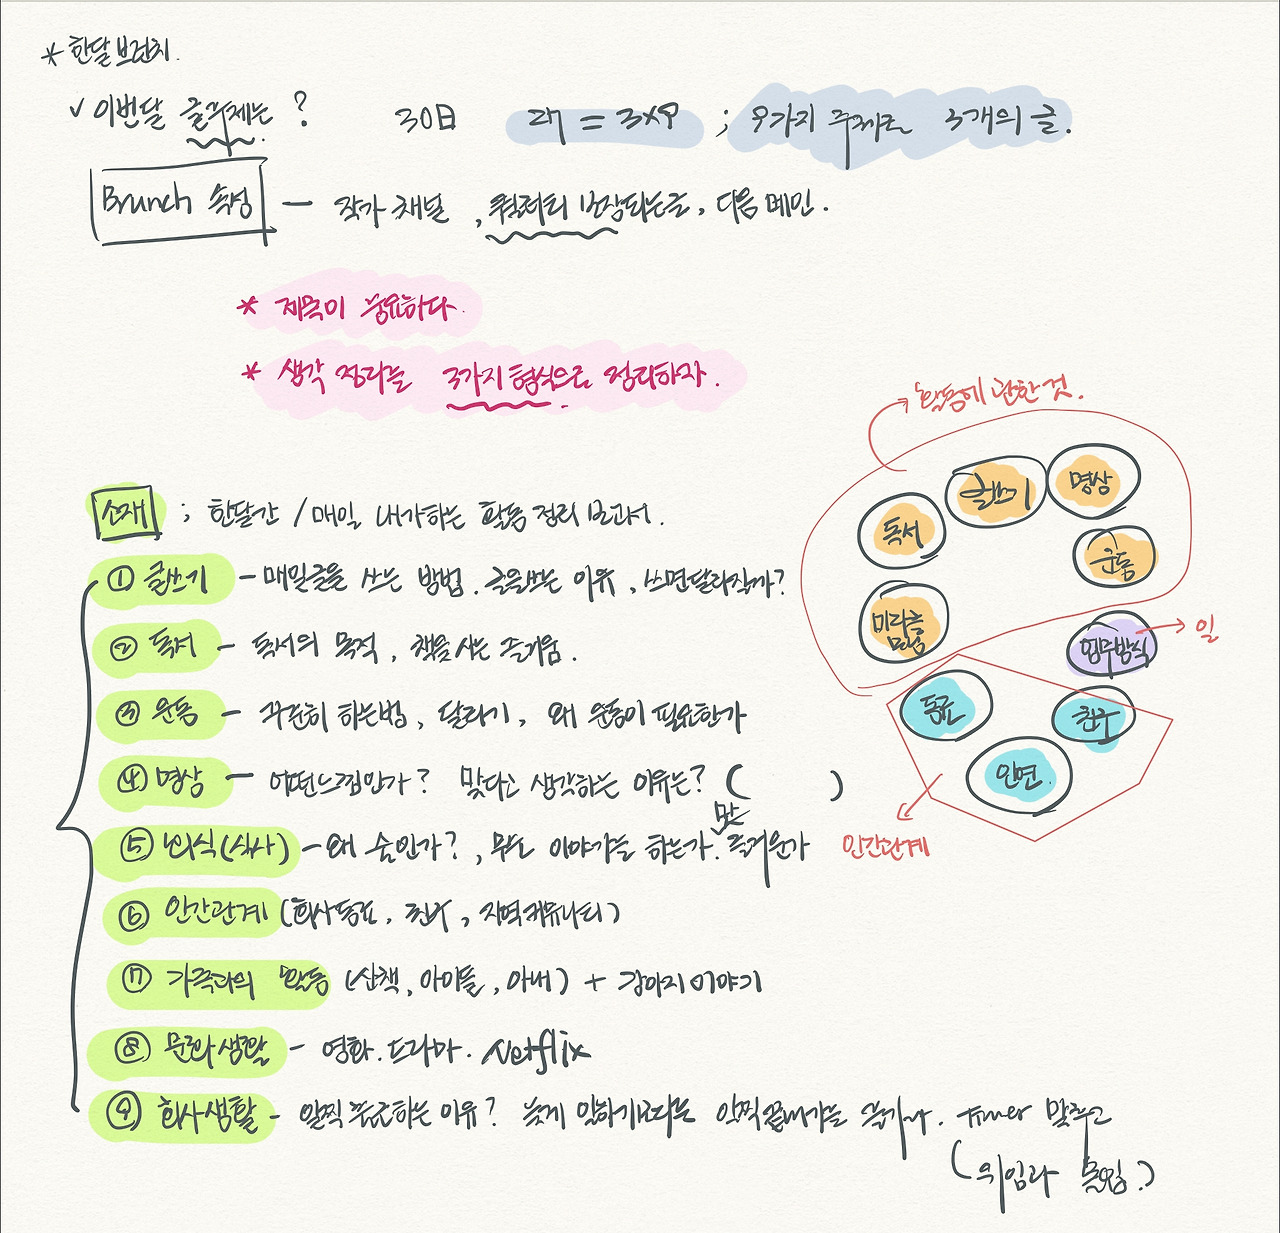 * 한달 브런치.
✓ 이번달 글주제는? 30日 27 = 3x9 ; 9가지 주제로 3개의 글.
Brunch 속성 — 작가 채널, 퀄리티 보장되는글, 다음 메인.
* 제목이 중요하다.
* 생각 정리는 3가지 형식으로 정리하자.
활동에 관한 것.
글쓰기 명상
독서 운동
미라클모닝
업무방식 → 일
동료 친구
인연.
인간관계
소재 ; 한달간 / 매일 내가하는 활동 정리 보고서.
① 글쓰기 - 매일글을 쓰는 방법. 글을쓰는 이유, 쓰면달라질까?
② 독서 - 독서의 목적, 책을 사는 즐거움.
③ 운동 - 꾸준히 하는법, 달리기, 왜 운동이 필요한가
④ 명상 - 어떤느낌인가? 맞다고 생각하는 이유는? ( )
⑤ 외식(식사) - 왜 술인가?, 무슨 이야기를 하는가. 맛 즐거운가
⑥ 인간관계 (회사동료, 친구, 지역커뮤니티)
⑦ 가족과의 활동 (산책, 아이들, 아내) + 강아지이야기
⑧ 문화생활 - 영화. 드라마. Netflix
⑨ 회사생활 - 일찍 출근하는 이유? 늦게 일하기보다는 일찍끝내기는 즐거나. Timer 맞추고
(위임과 몰입.)